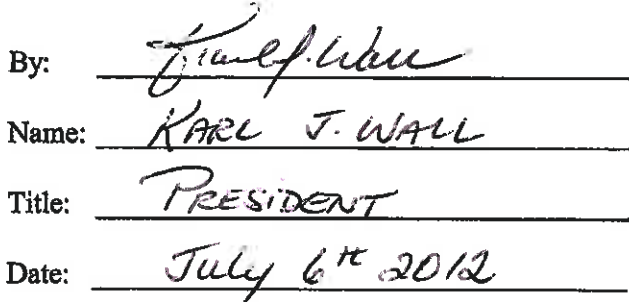 By: Karl J. Wall
Name: KARL J. WALL
Title: PRESIDENT
Date: July 6th 2012